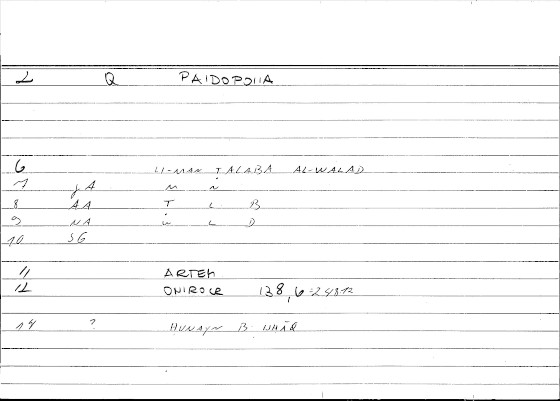 2 Q PAIDOPOIIA
6 LI-MAN TALABA AL-WALAD
7 jA M N
8 AA T L B
9 NA W L D
10 SG
11 ARTEM
12 ONIROCR 138,6=248 12
14 ? HUNAYN B ISHĀQ